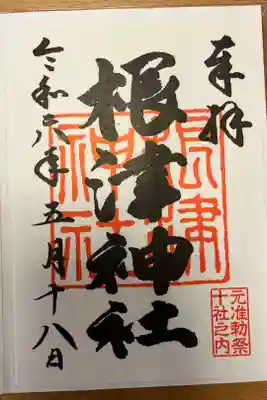 奉拝
根津神社
令和六年五月十八日
根津
神社
元准勅祭
十社之内